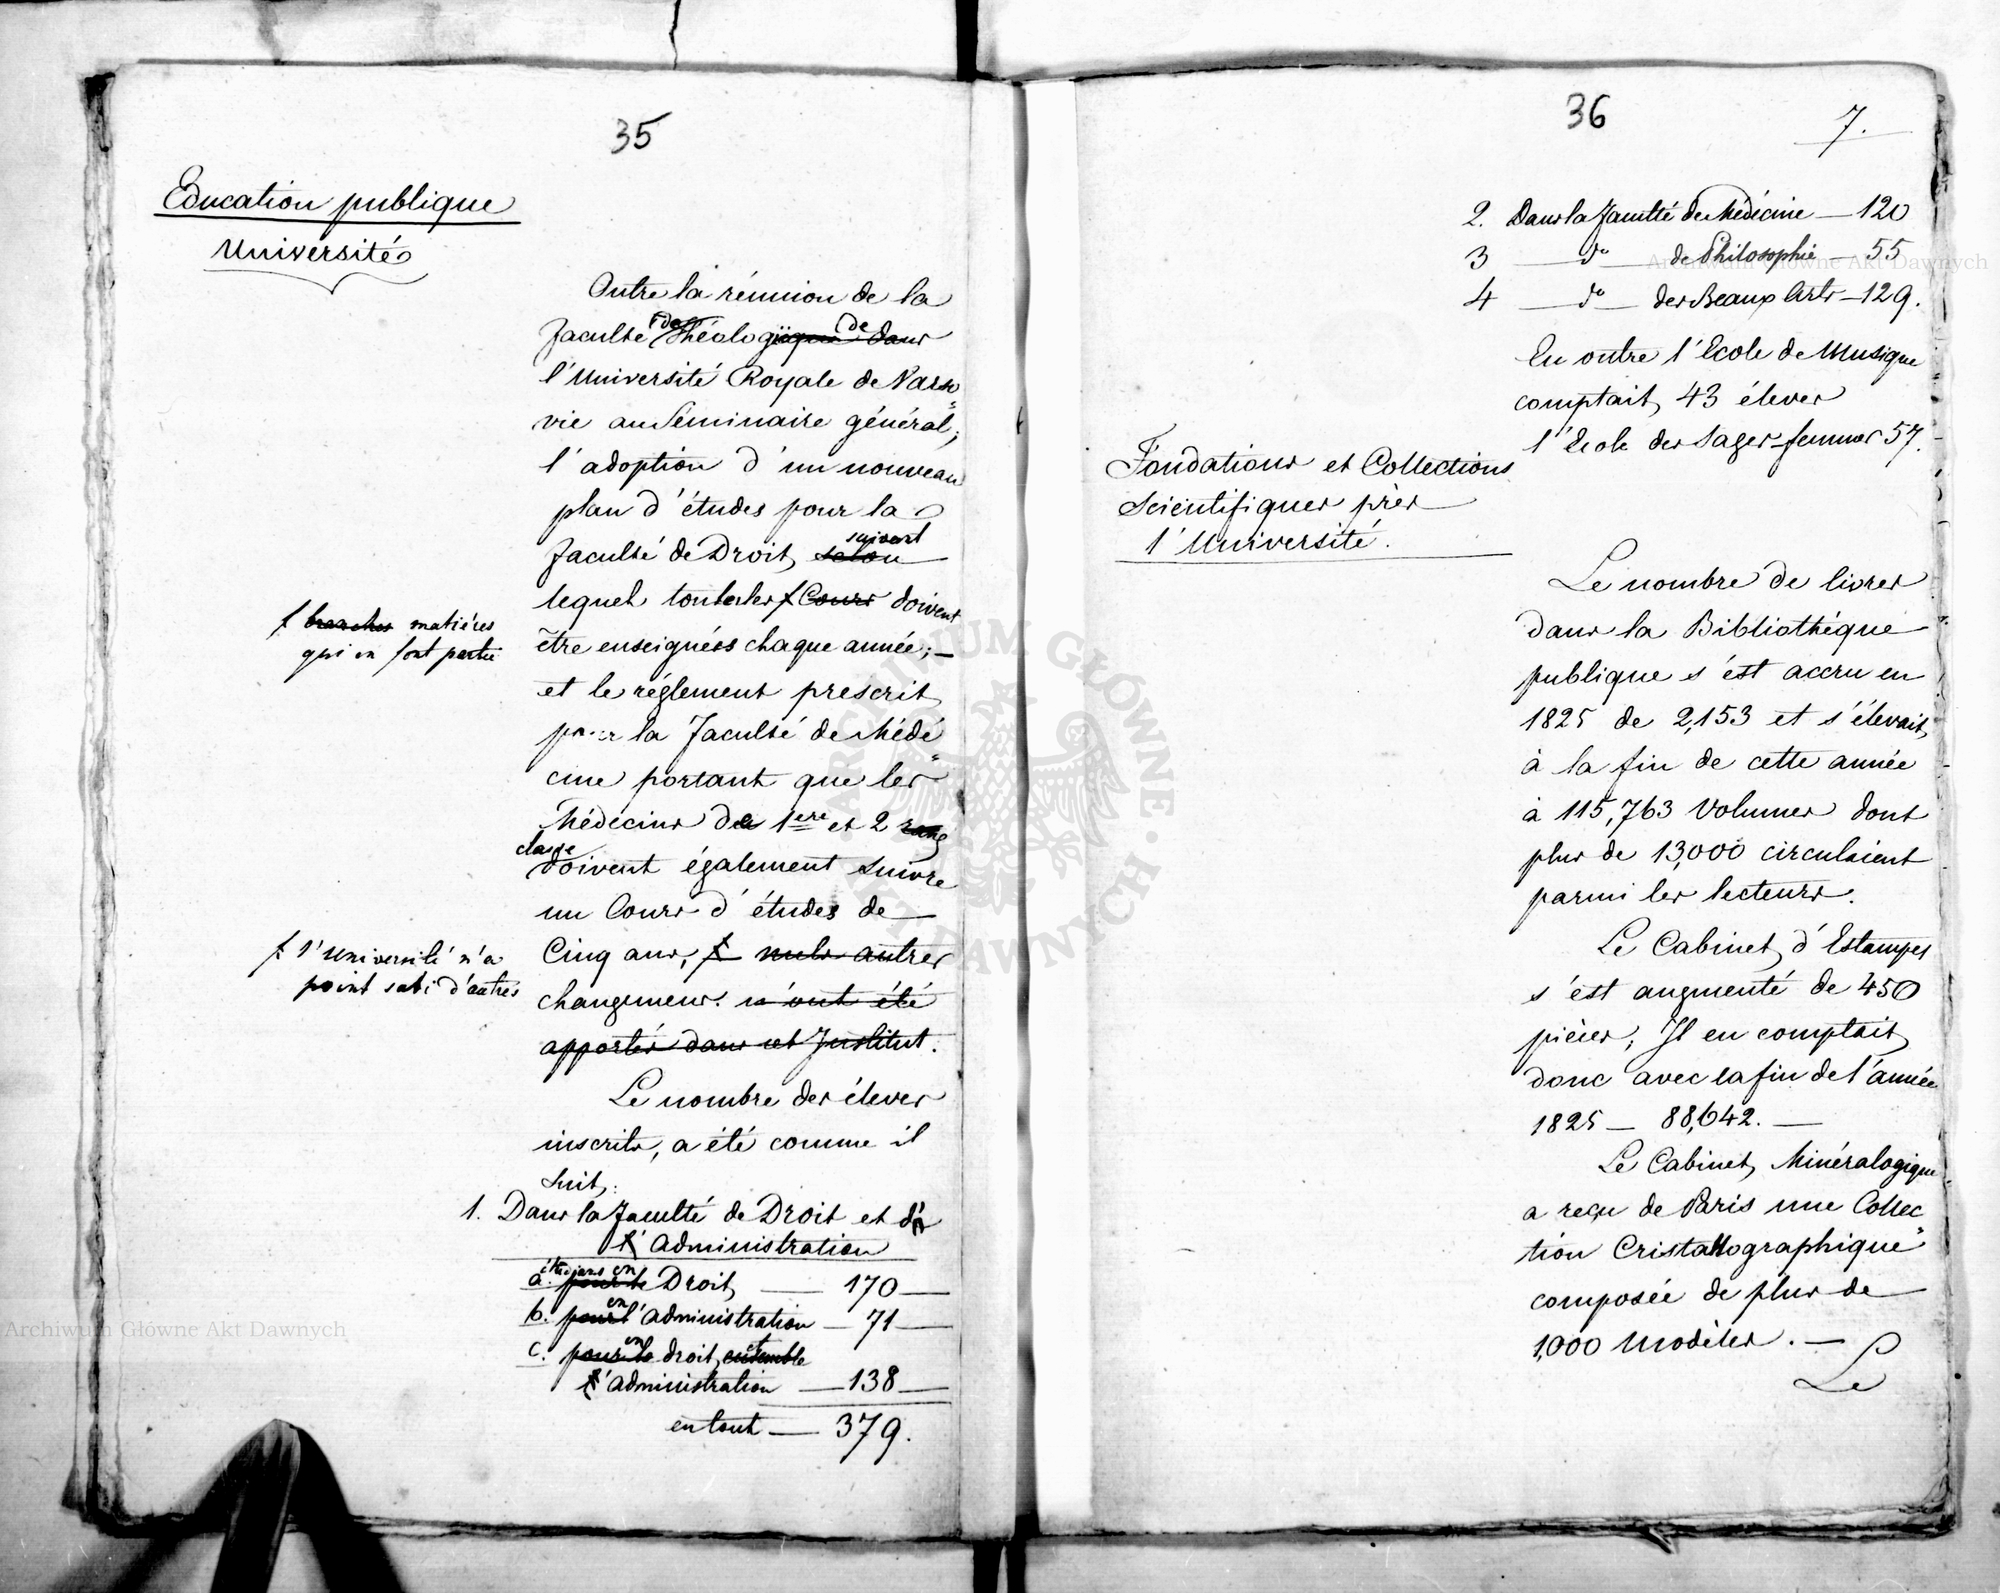 35
Education publique
Université
Outre la réunion de la
faculté de Théologique de dans
l'Université Royale de Varso
vie au Séminaire général;
l'adoption d'un nouveau
plan d'études pour la
faculté de Droit, selon suivant
lequel toutes les f Cours doivent
f branches matières
qui en font partie
être enseignées chaque année; —
et le réglement prescrit
pour la Faculté de Médé
cine portant que les
Médecins de 1ere et 2 rang
classe
doivent également suivre
un Cours d'études de
Cinq ans, f nuls autres
f l'Université n'a
point subi d'autres
changemens. n'ont été
apportés dans cet Institut.
Le nombre des éleves
inscrits, a été comme il
suit:
1. Dans la Faculté de Droit et d'
l'administration
a. étudians en pour le Droit, — 170 —
b. en pour l'administration — 71 —
c. en pour le droit, et ensemble
l'administration — 138 —
en tout — 379.
36
7.
2. Dans la Faculté de Médécine — 120
3 — do — de Philosophie — 55
4 — do — des Beaux Arts — 129.
En outre l'Ecole de Musique
comptait, 43 éleves
l'Ecole des Sages-femmes 57.
Fondations et Collections
Scientifiques près
l'Université.
Le nombre de livres
dans la Bibliothéque
publique s'est accru en
1825 de 2,153 et s'élevait,
à la fin de cette année
à 115,763 Volumes dont
plus de 13,000 circulaient
parmi les lecteurs.
Le Cabinet, d'Estampes
s'est augmenté de 450
pièces; Il en comptait,
donc avec la fin de l'année
1825 — 88,642. —
Le Cabinet, Minéralogique
a reçu de Paris une Collec
tion Cristallographique
composée de plus de
1,000 modèles. —
Le
ARCHIWUM GŁÓWNE AKT DAWNYCH
Archiwum Główne Akt Dawnych
Archiwum Główne Akt Dawnych